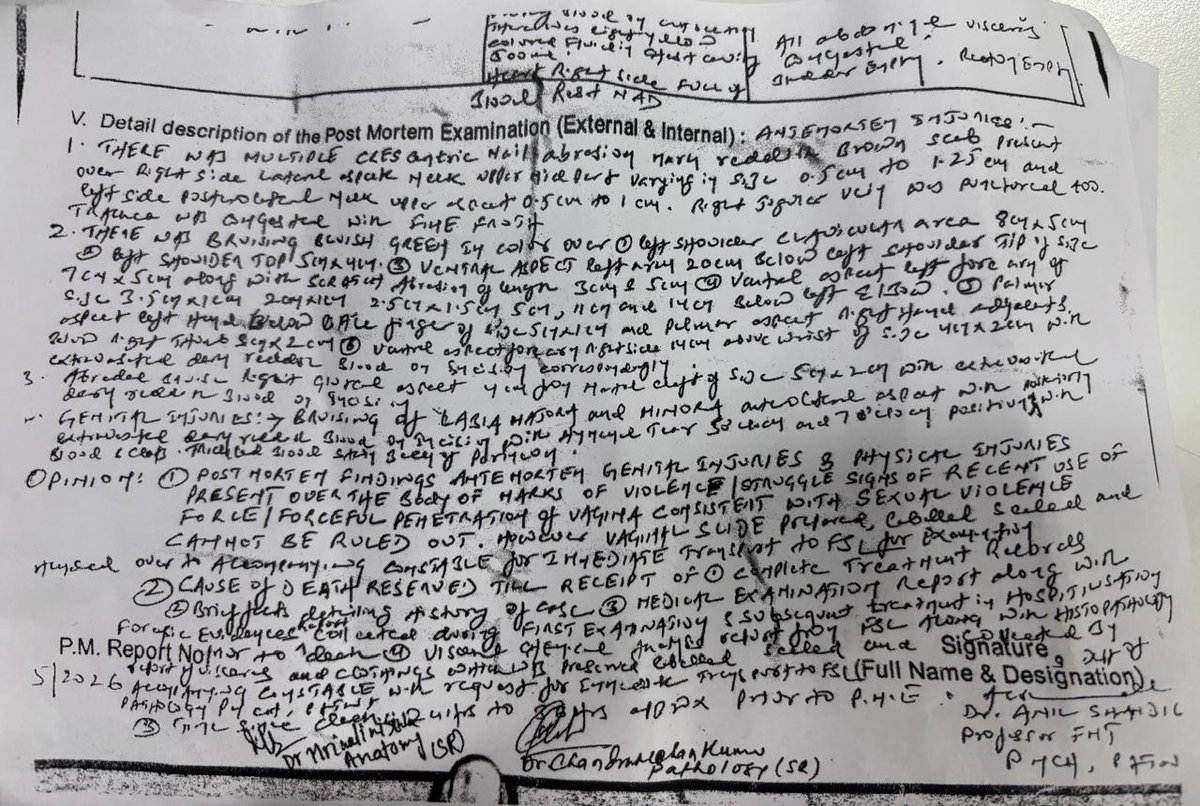 blood by
colored Fluid in chest cavity
500ml.
Heart Right side full of
Blood Rest NAD
All abdominal viscera
congested.
Bladder Empty. Rectum Empty
V. Detail description of the Post Mortem Examination (External & Internal) : ANTEMORTEM INJURIES :-
1. THERE WAS MULTIPLE CRESCENTRIC Nail abrasion mark reddish Brown scab present
over Right side Lateral aspect Neck upper mid part varying in size 0.5cm to 1.25cm and
left side posterolateral Neck upper aspect 0.5cm to 1cm. Right Jugular vein was punctured too.
Trachea was congested with FINE FROTH
2. THERE WAS BRUISING BLUISH GREEN IN COLOR OVER ① left SHOULDER CLAVICULAR area 8cm x 5cm
② left SHOULDER TOP 5cm x 4cm. ③ VENTRAL ASPECT left arm 20cm Below left shoulder Tip of size
7cm x 5cm along with scratch Abrasion of length 3cm & 5cm ④ Ventral aspect left fore arm of
size 3.5cm x 1cm 2cm x 1cm 2.5cm x 1.5cm 5cm, 11cm and 14cm Below left Elbow. ⑤ Palmer
aspect left Hand Below finger of size 5cm x 1cm and Palmer aspect Right Hand adjacent
Right Thumb 3cm x 2cm ⑥ Ventral aspect forearm Right side 14cm above wrist of size 4cm x 2cm with
extravasated dark reddish Blood on Incision correspondingly
3. Abraded Bruise Right Gluteal aspect 4cm from Natal cleft of size 5cm x 2cm with extravasated
dark reddish Blood on Incision
GENITAL INJURIES :→ BRUISING of LABIA MAJORA and MINORA aspect with
extravasated dark reddish Blood on Incision with Hymenal Tear 5 o'clock and 7 o'clock position with
Blood clots.
OPINION: ① POSTMORTEM FINDINGS ANTEMORTEM GENITAL INJURIES & PHYSICAL INJURIES
PRESENT OVER THE Body OF MARKS OF VIOLENCE/STRUGGLE SIGNS OF RECENT USE OF
FORCE/FORCEFUL PENETRATION of VAGINA CONSISTENT WITH SEXUAL VIOLENCE
CANNOT BE RULED OUT. HOWEVER VAGINAL SLIDE Prepared, labelled Sealed and
Handed over to Accompanying CONSTABLE for IMMEDIATE Transport to FSL for Examination
② CAUSE OF DEATH RESERVED TILL RECEIPT OF ① Complete Treatment Records
② Brief facts detailing History of case ③ MEDICAL EXAMINATION Report along with
Forensic Evidences Report collected during FIRST EXAMINATION & Subsequent treatment in HOSPITALISATION
P.M. Report No. prior to death ④ VISCERA CHEMICAL Analysis report from FSL along WITH HISTOPATHOLOGY
Signature
report of viscera and CLOTHINGS which was Preserved labelled Sealed and collected By
5/2026 Accompanying CONSTABLE with request for Immediate Transport to FSL & Deptt of
(Full Name & Designation)
PATHOLOGY
③ Time since death 12 Hrs to Hrs approx Prior to P.M.E.
Anatomy (SR)
Dr Chandramohan Kumar
Pathology (SR)
Dr. ANIL SHANDIL
Professor FMT
PMCH, PATNA